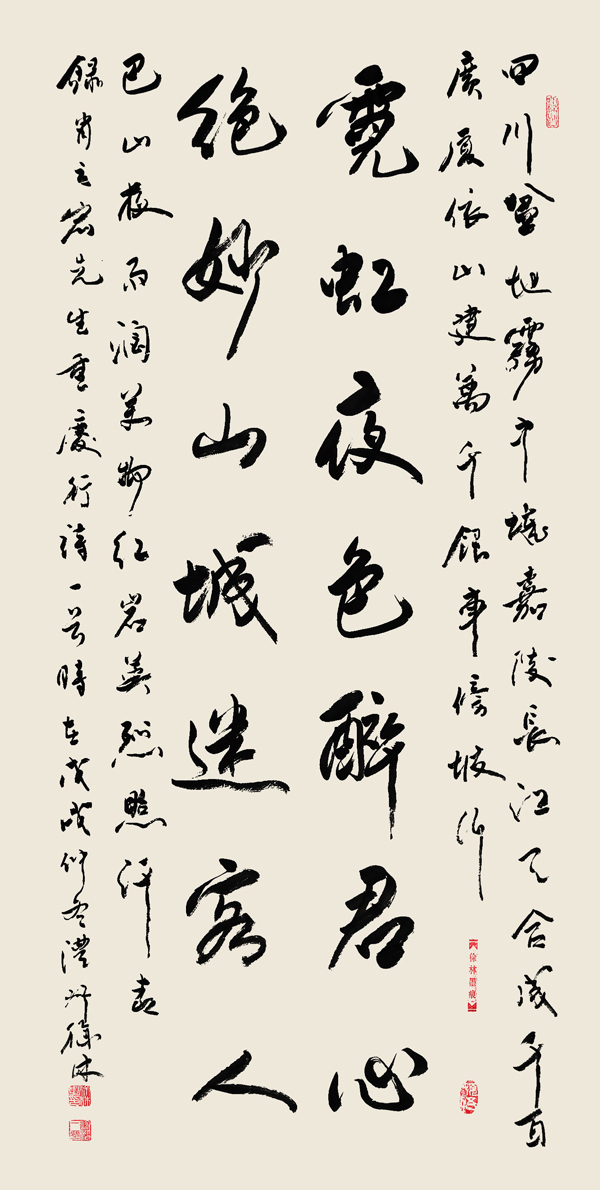 四川盆地霧中城嘉陵長江天合成千百
廣廈依山建萬千銀車傍坡行
霓虹夜色醉君心
絕妙山城迷客人
巴山夜雨潤紅岩英烈照汗青
錄先生重慶行詩一首時在戊戌仲冬澧州徐林
徐林墨痕